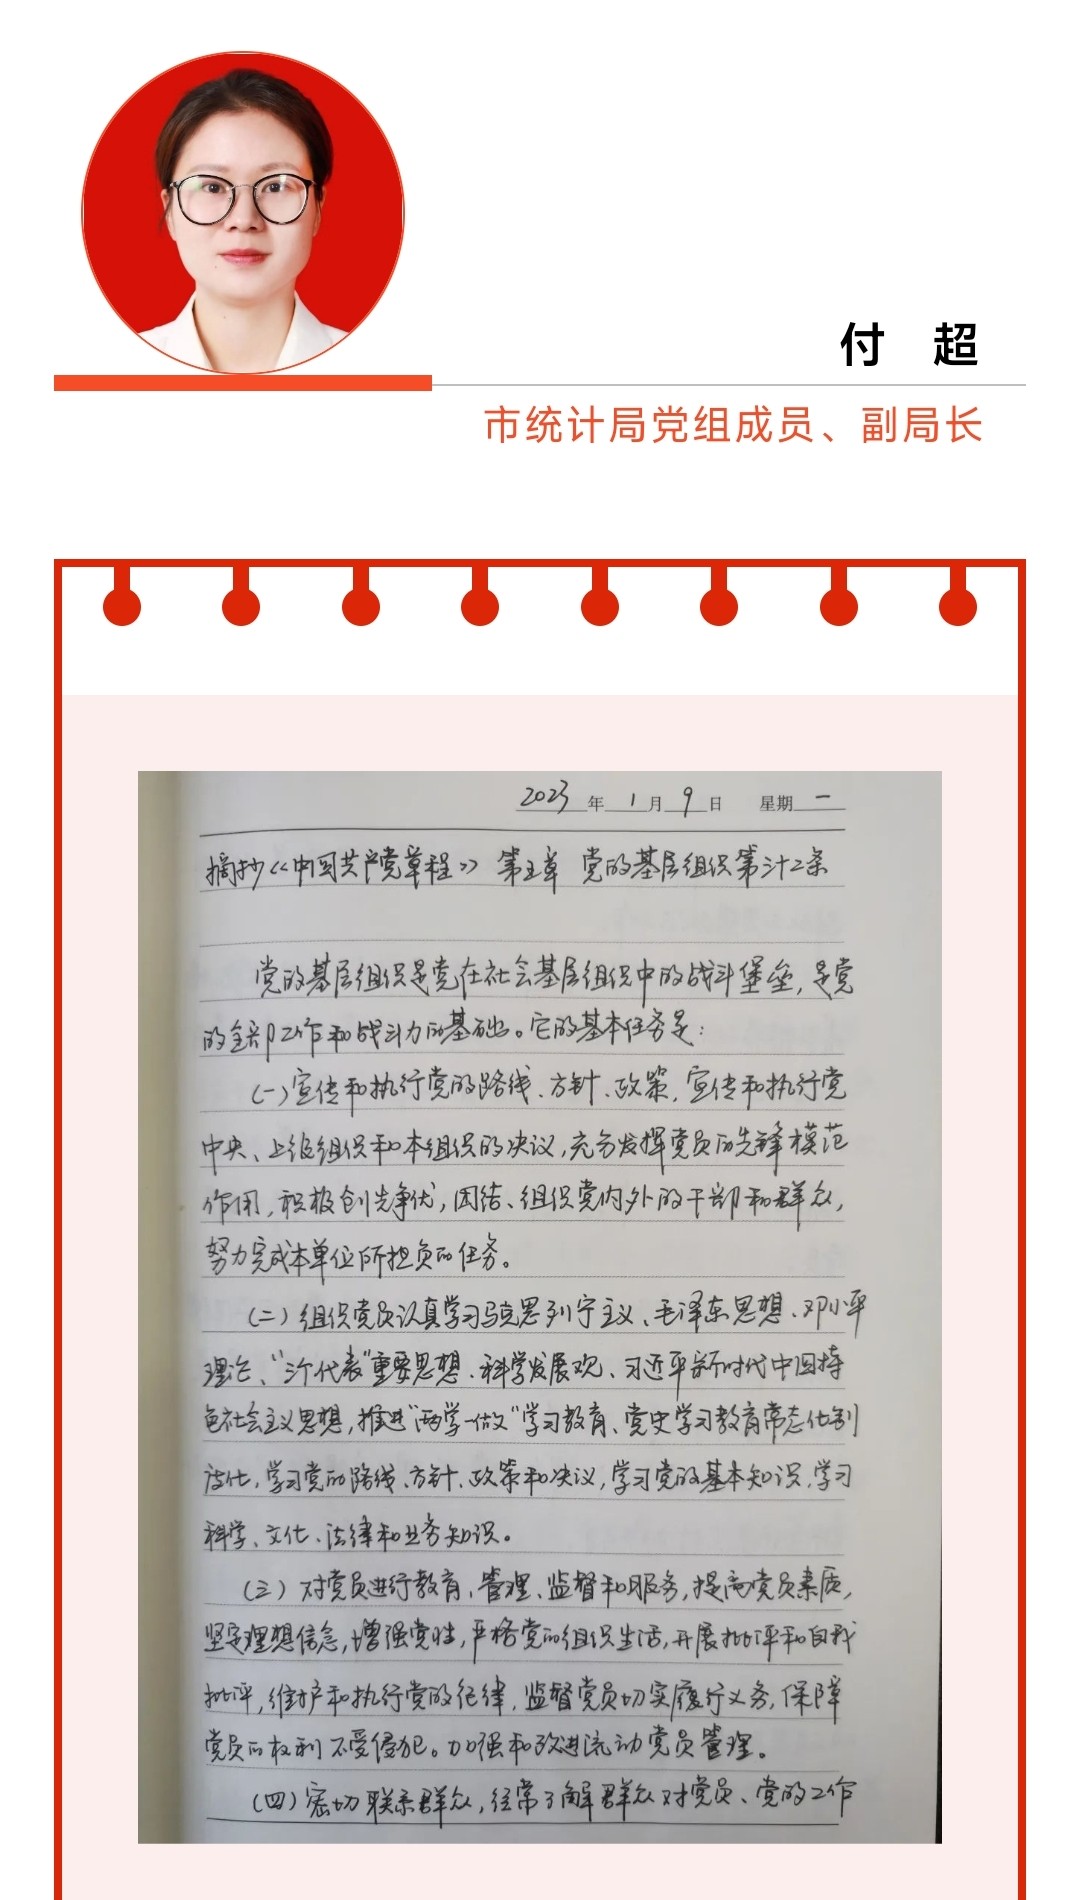 付 超
市统计局党组成员、副局长
2023年1月9日 星期一
摘抄《中国共产党章程》 第五章 党的基层组织第三十二条
党的基层组织是党在社会基层组织中的战斗堡垒，是党
的全部工作和战斗力的基础。它的基本任务是：
(一)宣传和执行党的路线、方针、政策，宣传和执行党
中央、上级组织和本组织的决议，充分发挥党员的先锋模范
作用，积极创先争优，团结、组织党内外的干部和群众，
努力完成本单位所担负的任务。
(二)组织党员认真学习马克思列宁主义、毛泽东思想、邓小平
理论、“三个代表”重要思想、科学发展观、习近平新时代中国特
色社会主义思想，推进“两学一做”学习教育、党史学习教育常态化制
度化，学习党的路线、方针、政策和决议，学习党的基本知识，学习
科学、文化、法律和业务知识。
(三)对党员进行教育、管理、监督和服务，提高党员素质，
坚定理想信念，增强党性，严格党的组织生活，开展批评和自我
批评，维护和执行党的纪律，监督党员切实履行义务，保障
党员的权利不受侵犯。加强和改进流动党员管理。
(四)密切联系群众，经常了解群众对党员、党的工作